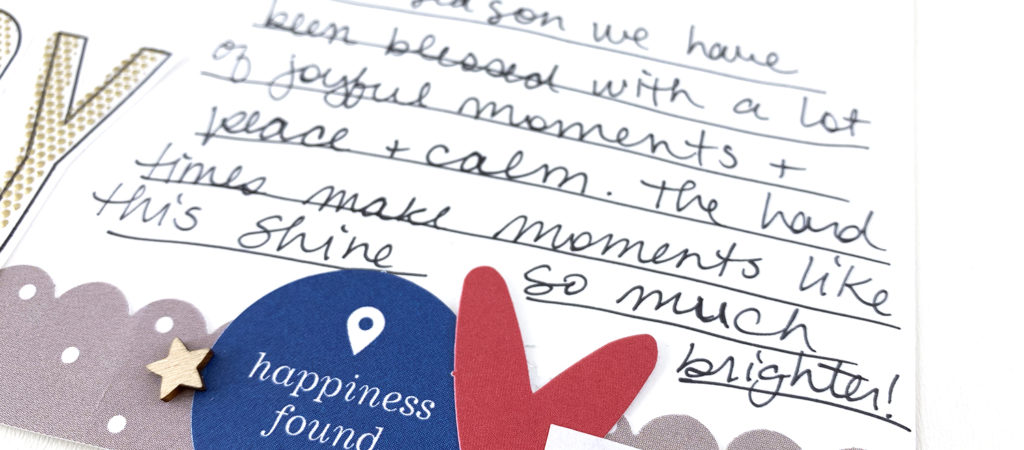 season we have
been blessed with a lot
of joyful moments +
peace + calm. The hard
times make moments like
this shine so much
brighter!
happiness
found